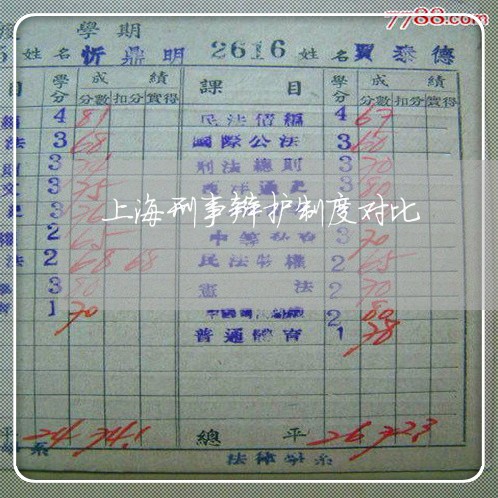 7788.com
學期
5 姓名 忻鼎明 2616 姓名 賈泰德
目 學分 成績 課目 學分 成績
分數 扣分 實得 分數 扣分 實得
4 81 民法債編 4 67
法 3 68 國際公法 3 60
3 刑法總則 3 70
3 75 3 80
3 上海刑事辩护制度对比
2 65 3 70
法 2 68 68 民法物權 2 65
3 80 憲法 2 70
1 70 2 80
普通體育 1 78
平 24 74.1 總平 26 72.3
系 法律學系